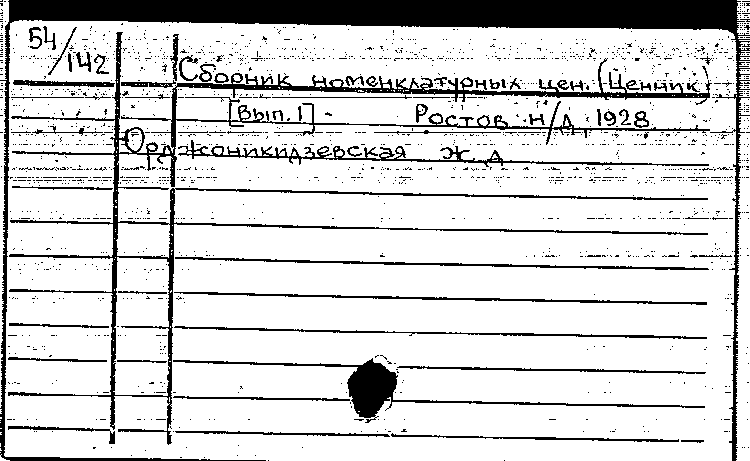 54/142
Сборник номенклатурных цен. (Ценник)
[Вып. 1] - Ростов н/Д, 1928
Орджоникидзевская ж. д